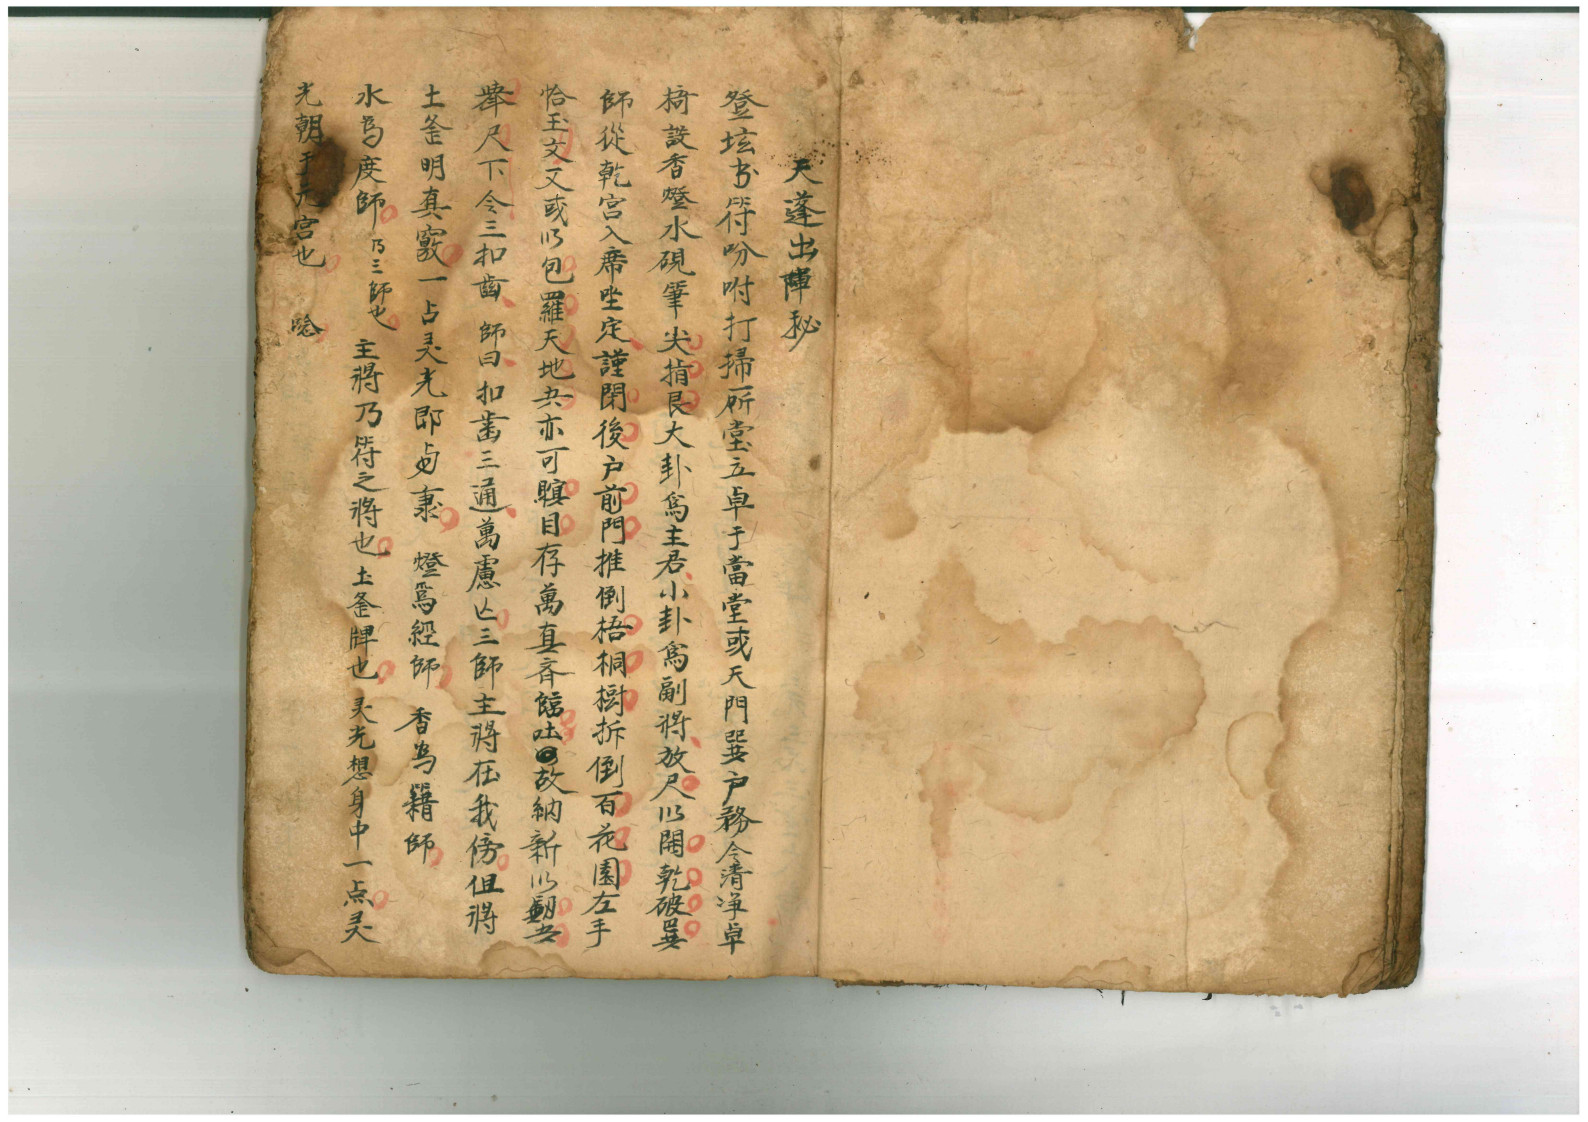 天蓬出陣秘
登坛书符吩咐打掃一所堂立卓于當堂或天門巽户務令清净卓
椅設香燈水硯筆尖指艮大卦爲主君小卦爲副將放尺以開乾破巽
師從乾宫入席坐定謹閉後户前門推倒梧桐樹拆倒百花園左手
恰玉文又或以包羅天地共亦可瞑目存萬真斉臨吐故納新以
舉尺下令三扣齒 師曰扣齒三通萬慮亡三師主將在我傍但將
土釜明真竅一占灵光即 燈爲經師 香为籍師
水为度師 乃三師也 主將乃符之將也 土釜牌也 灵光想身中一点灵
光朝于元宫也 唸